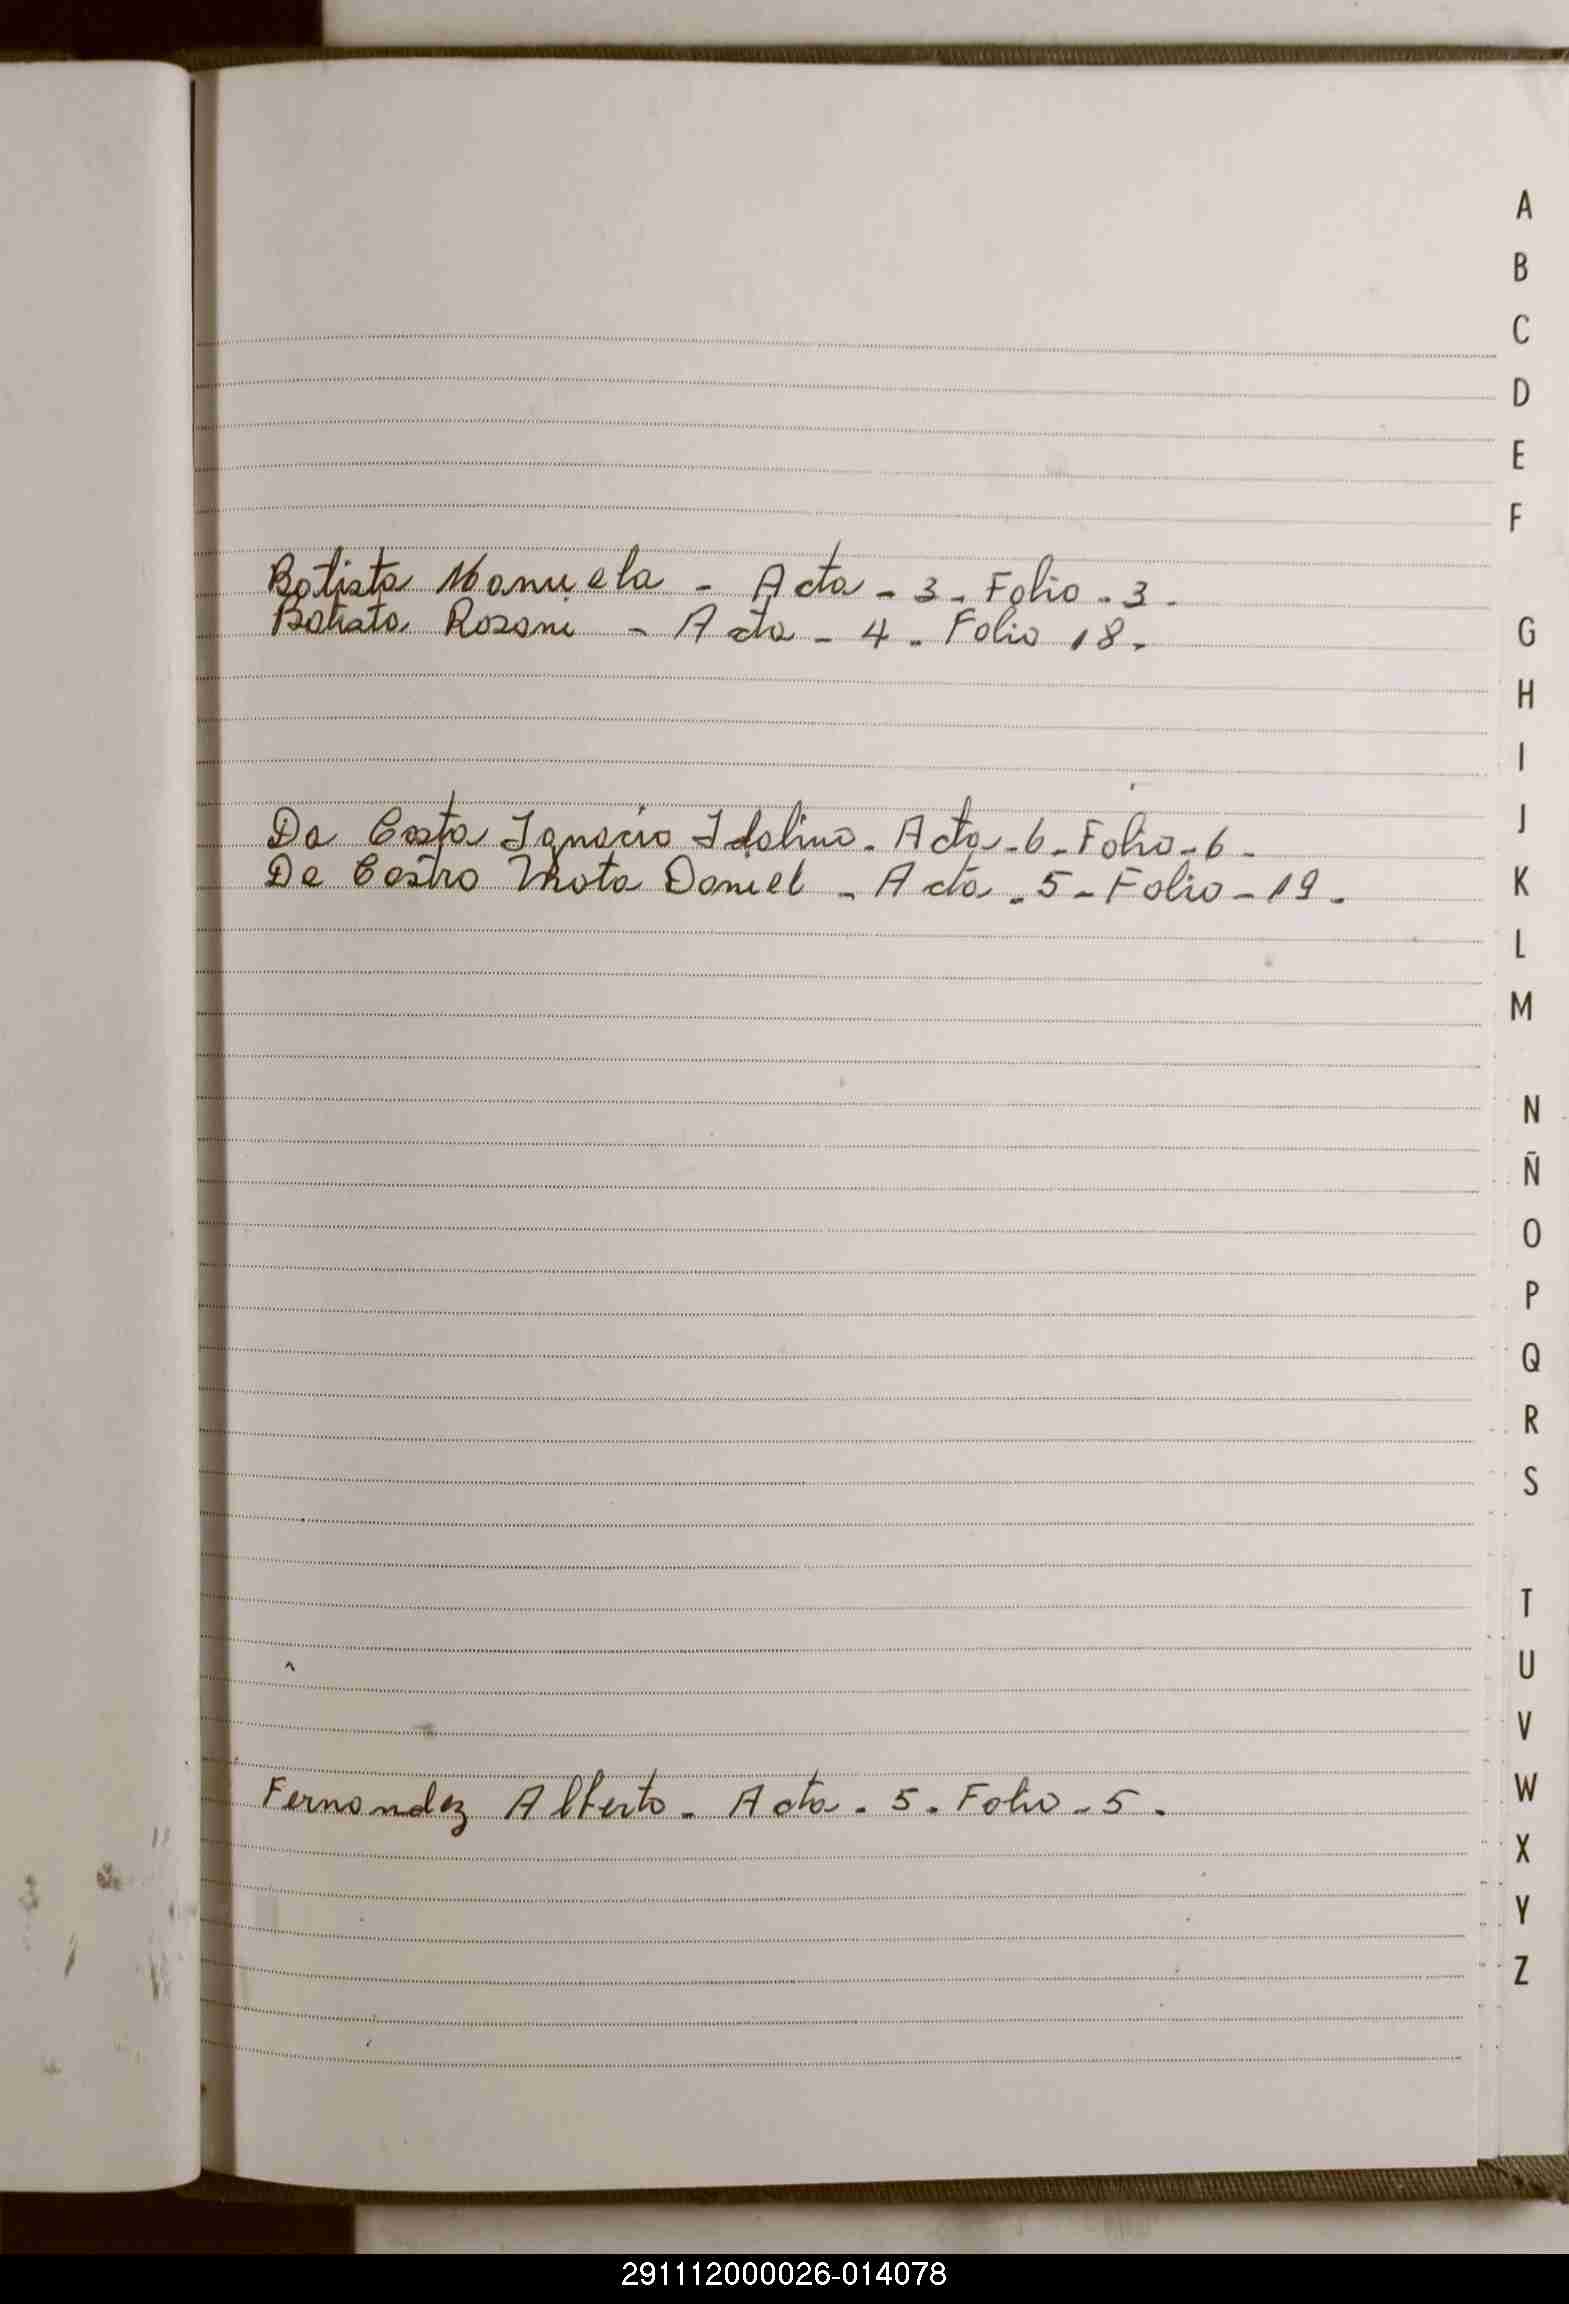 A
B
C
D
E
F
Batista Manuela - Acta - 3 - Folio - 3 -
Batista Rosani - Acta - 4 - Folio 18 -
G
H
I
J
Da Costa Ignacio Idalino - Acta - 6 - Folio - 6 -
De Castro Mota Daniel - Acta - 5 - Folio - 19 -
K
L
M
N
Ñ
O
P
Q
R
S
T
U
V
Fernandez Alberto - Acta - 5 - Folio - 5 -
W
X
Y
Z
291112000026-014078